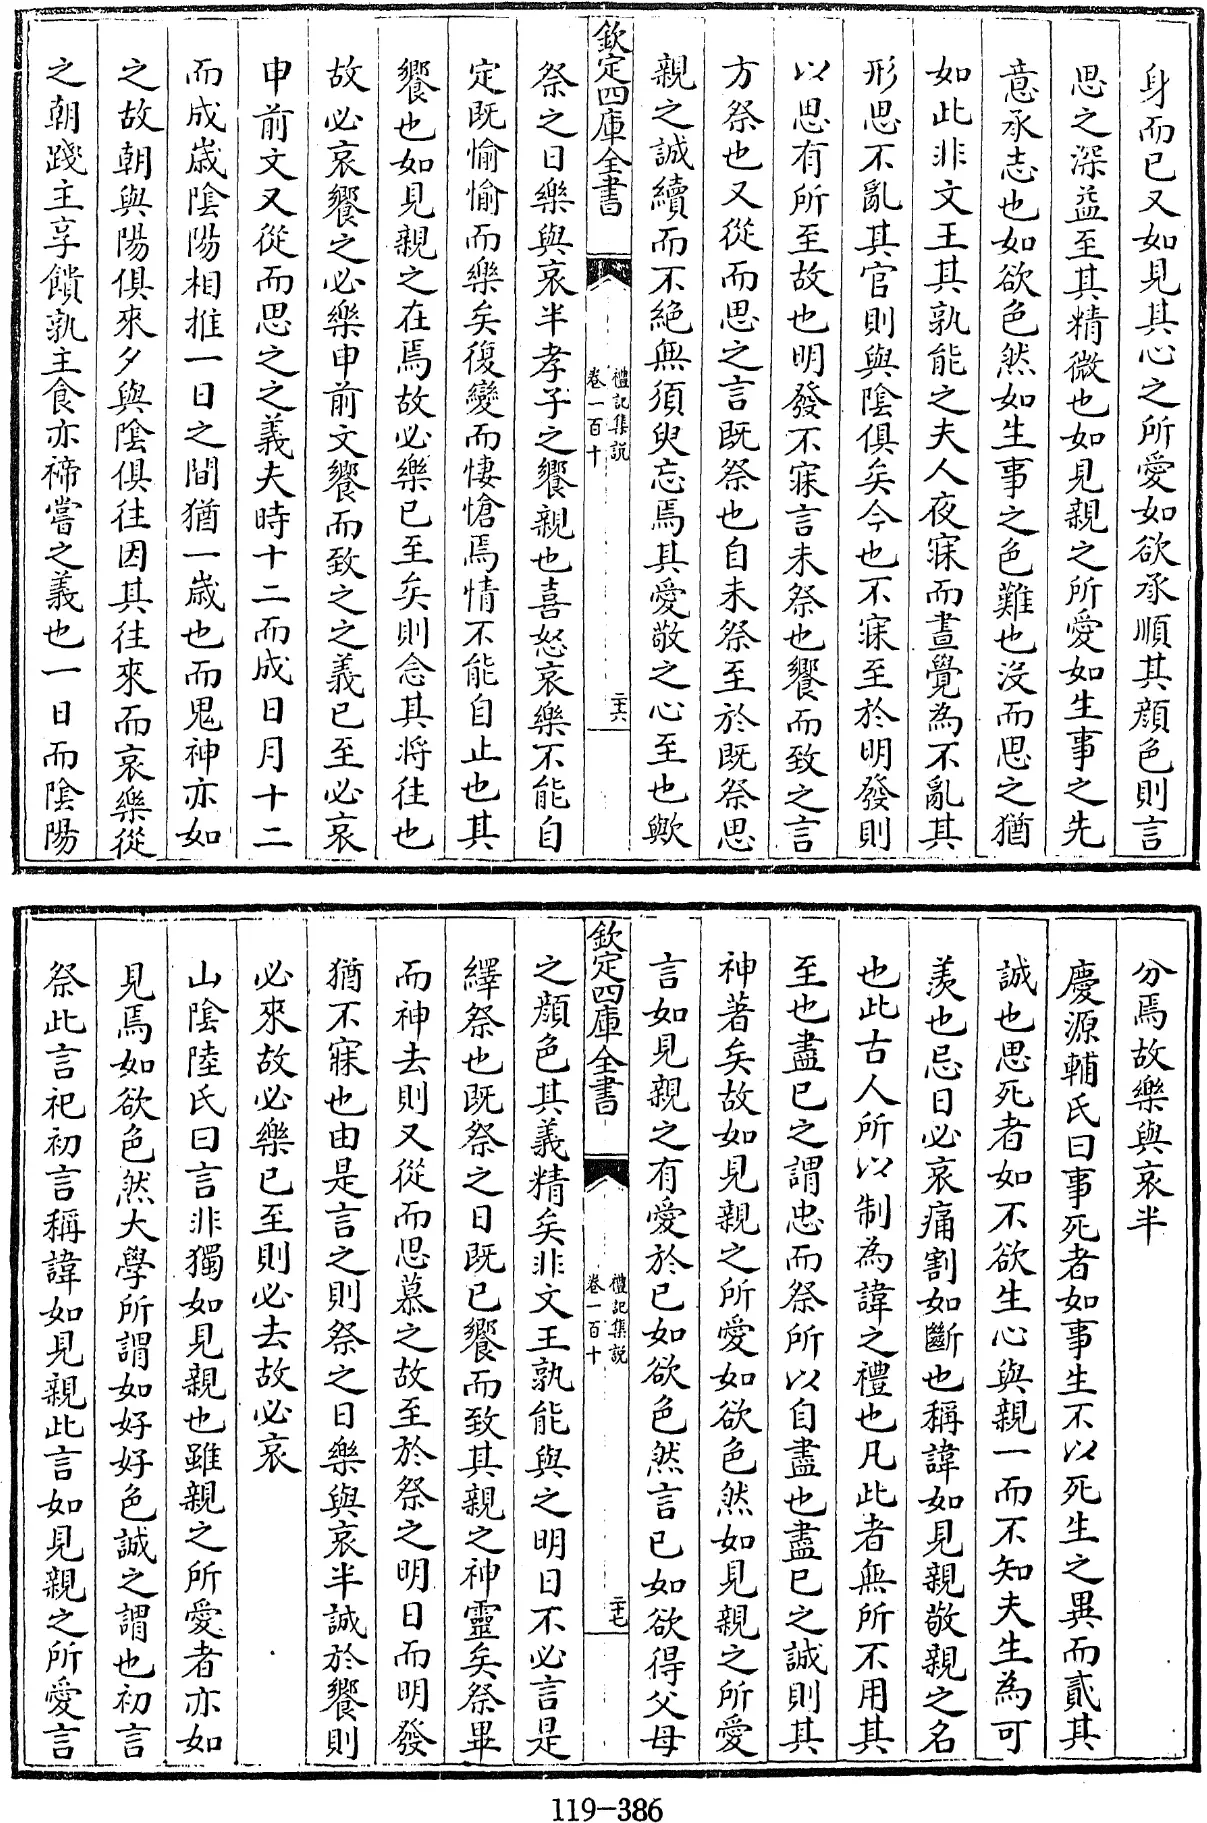 身而已又如見其心之所愛如欲承順其顔色則言
思之深益至其精微也如見親之所愛如生事之先
意承志也如欲色然如生事之色難也沒而思之猶
如此非文王其孰能之夫人夜寐而晝覺為不亂其
形思不亂其官則與陰俱矣今也不寐至於明發則
以思有所至故也明發不寐言未祭也饗而致之言
方祭也又從而思之言既祭也自未祭至於既祭思
親之誠續而不絶無須臾忘焉其愛敬之心至也歟
欽定四庫全書
禮記集說
卷一百十
二十六
祭之日樂與哀半孝子之饗親也喜怒哀樂不能自
定既愉愉而樂矣復變而悽愴焉情不能自止也其
饗也如見親之在焉故必樂已至矣則念其將往也
故必哀饗之必樂申前文饗而致之之義已至必哀
申前文又從而思之之義夫時十二而成日月十二
而成歲陰陽相推一日之間猶一歲也而鬼神亦如
之故朝與陽俱來夕與陰俱往因其往來而哀樂從
之朝踐主享饋孰主食亦禘嘗之義也一日而陰陽
分焉故樂與哀半
慶源輔氏曰事死者如事生不以死生之異而貳其
誠也思死者如不欲生心與親一而不知夫生為可
羨也忌日必哀痛割如斷也稱諱如見親敬親之名
也此古人所以制為諱之禮也凡此者無所不用其
至也盡已之謂忠而祭所以自盡也盡已之誠則其
神著矣故如見親之所愛如欲色然如見親之所愛
言如見親之有愛於已如欲色然言已如欲得父母
欽定四庫全書
禮記集說
卷一百十
二十七
之顔色其義精矣非文王孰能與之明日不必言是
繹祭也既祭之日既已饗而致其親之神靈矣祭畢
而神去則又從而思慕之故至於祭之明日而明發
猶不寐也由是言之則祭之日樂與哀半誠於饗則
必來故必樂已至則必去故必哀
山陰陸氏曰言非獨如見親也雖親之所愛者亦如
見焉如欲色然大學所謂如好好色誠之謂也初言
祭此言祀初言稱諱如見親此言如見親之所愛言
119-386